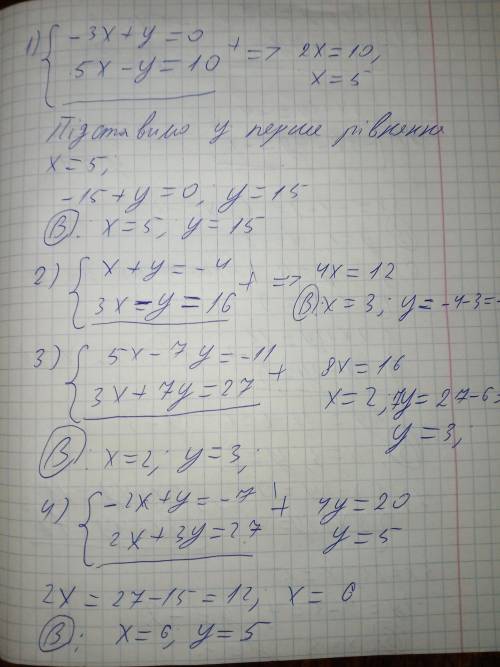 1) { -3x+y=0
5x-y=10 + => 2x=10,
x=5
Підставимо у перше рівняння
x=5;
-15+y=0; y=15
В: x=5, y=15
2) { x+y=-4
3x-y=16 + => 4x=12
В: x=3; y=-4-3=-
3) { 5x-7y=-11
3x+7y=27 + 8x=16
x=2, 7y=27-6=
y=3;
В: x=2; y=3;
4) { -2x+y=-7
2x+3y=27 + 4y=20
y=5
2x=27-15=12, x=6
В: x=6, y=5